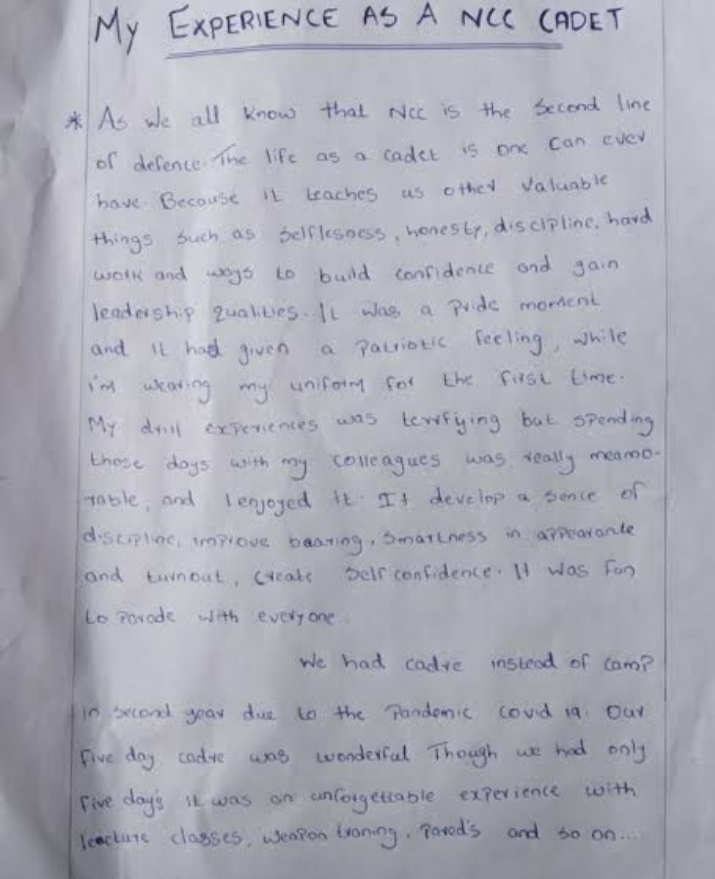 My EXPERIENCE AS A NCC CADET
* As we all know that NCC is the second line
of defence. The life as a cadet is one can ever
have. Because it teaches us other valuable
things such as selflesness, honesty, discipline, hard
work and ways to build confidence and gain
leadership qualities. It was a pride moment
and it had given a patriotic feeling, while
i'm wearing my uniform for the first time.
My drill experiences was terrfying but spending
those days with my colleagues was really meamo-
rable, and I enjoyed it. It develop a sence of
discipline, improve bearing, smartness in appearance
and turnout, create self confidence. It was fun
to parade with everyone.
We had cadre instead of camp
in second year due to the pandemic covid 19. Our
five day cadre was wonderful Though we had only
five day's it was an unforgettable experience with
leacture classes, weapon traning, parad's and so on...